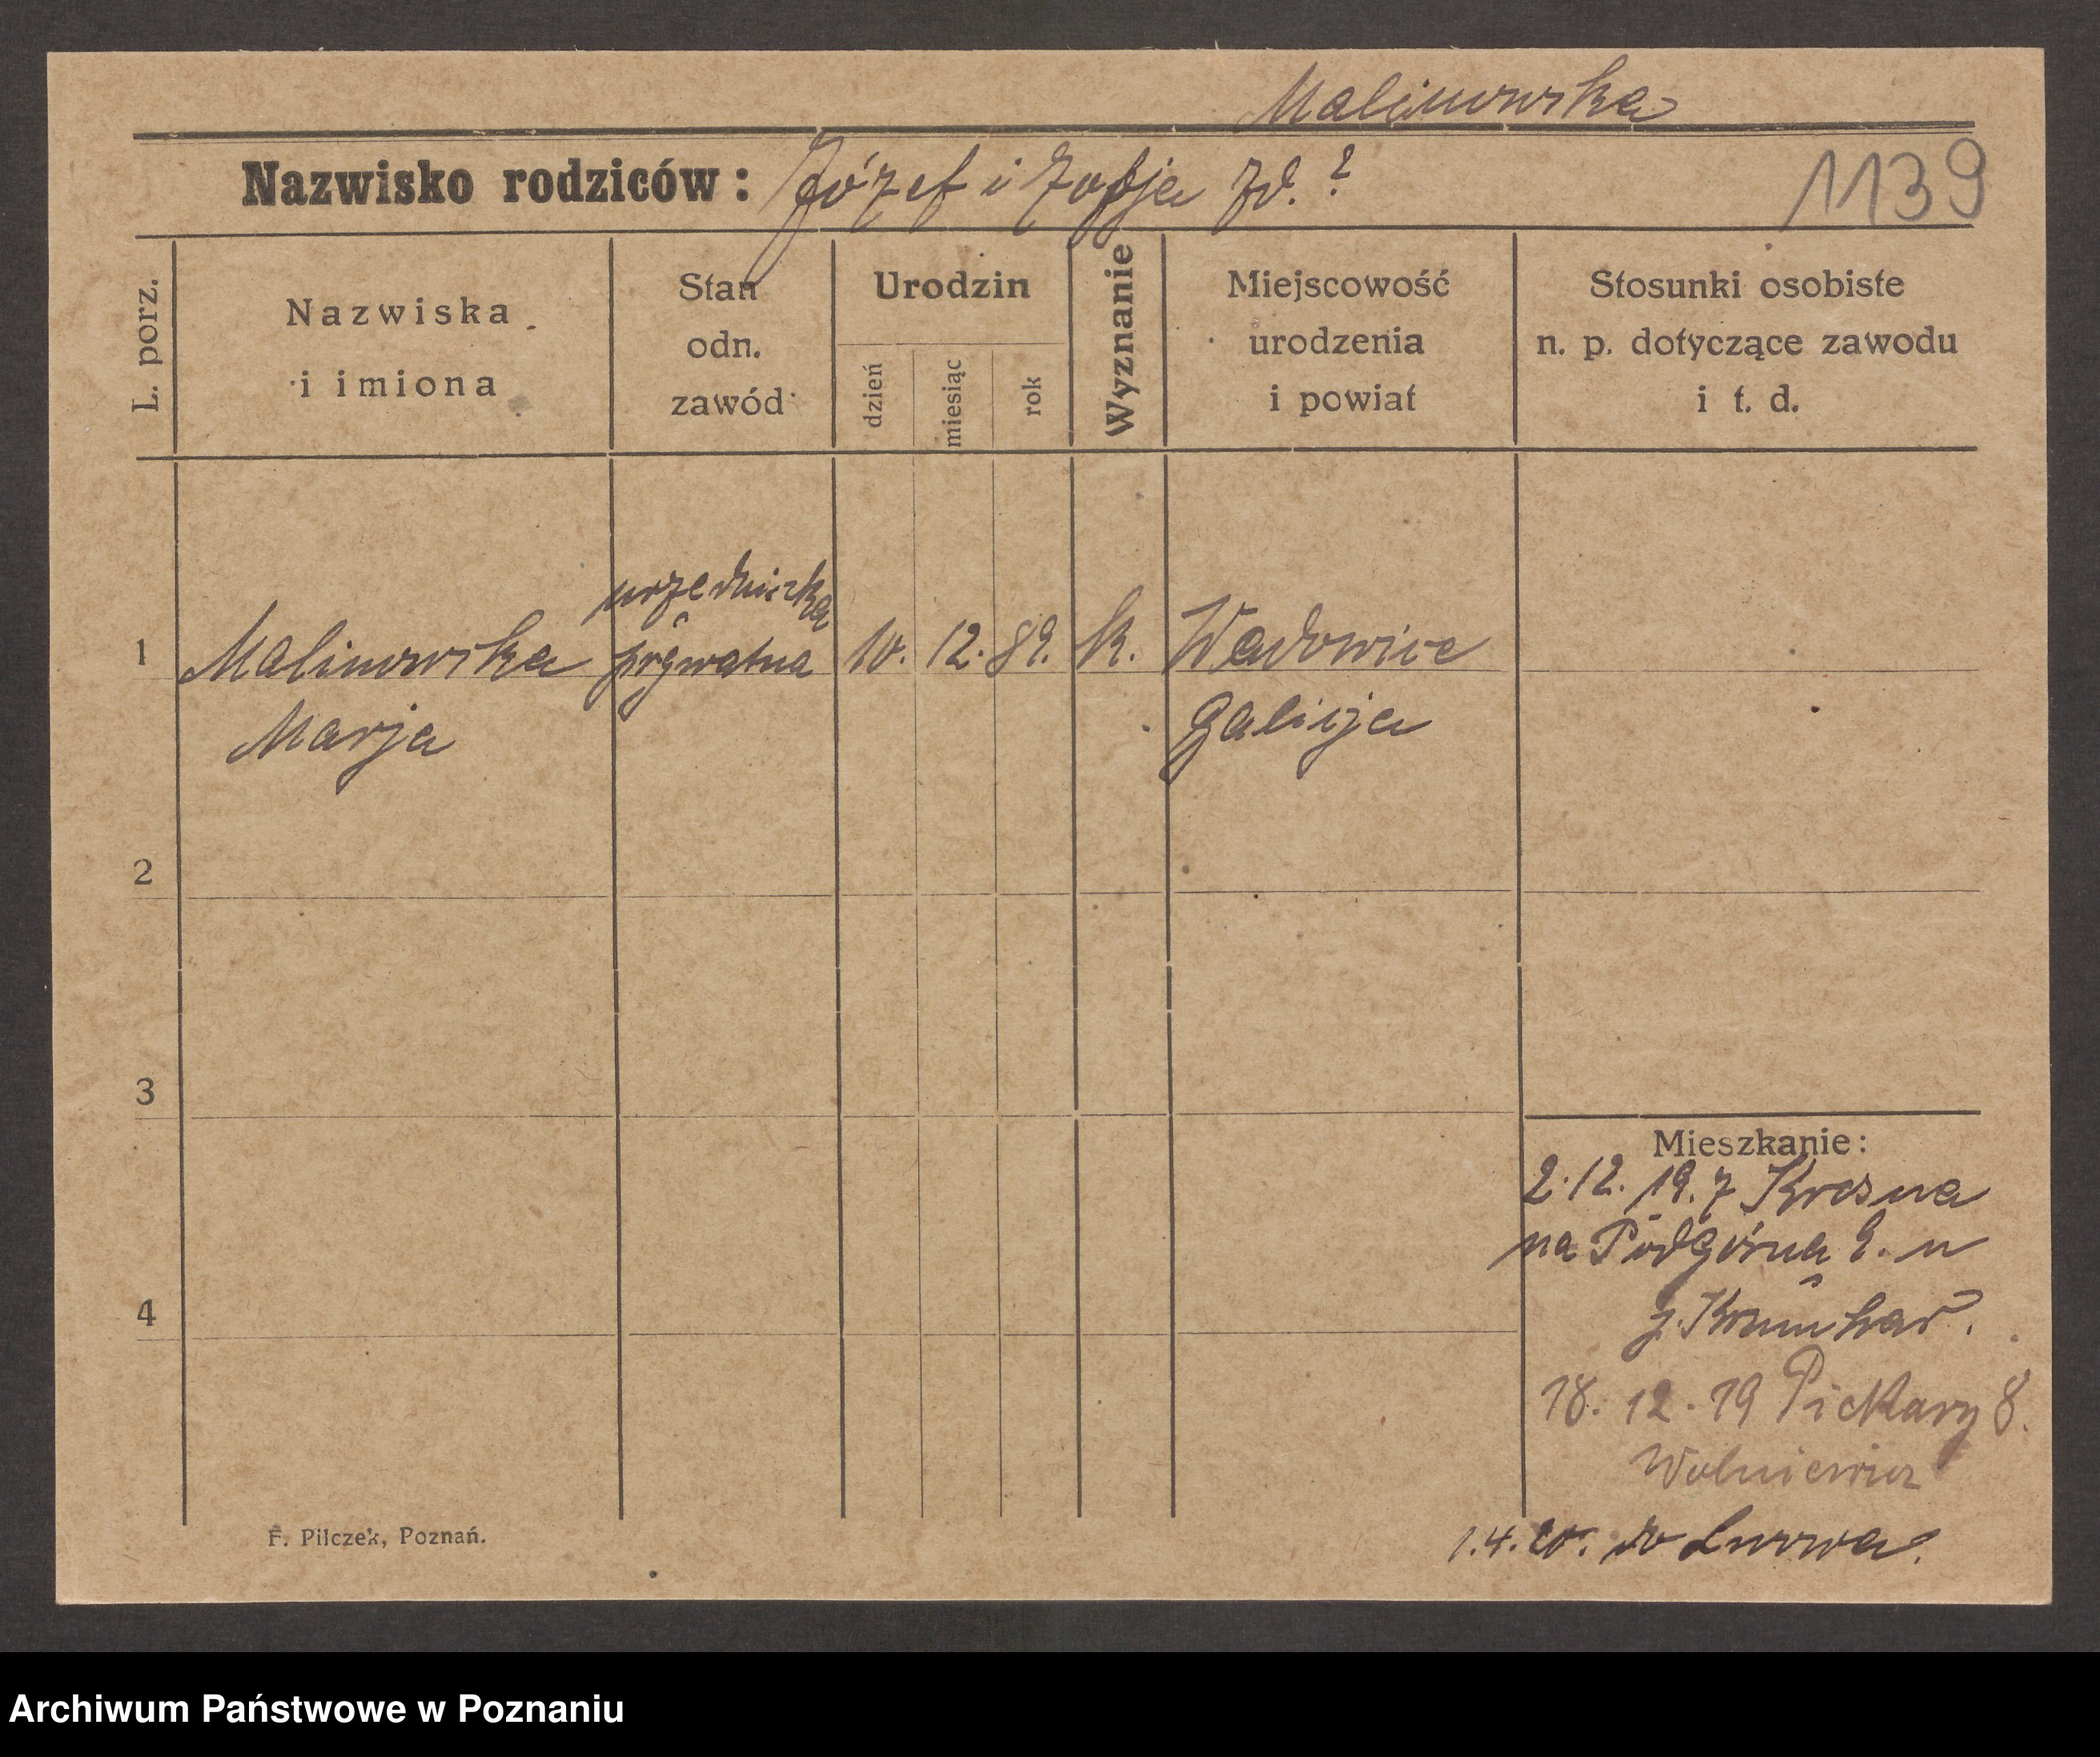 Malinowska
Nazwisko rodziców: Józef i Zofja zd. ?
1139
L. porz.
Nazwiska
i imiona
Stan
odn.
zawód
Urodzin
dzień
miesiąc
rok
Wyznanie
Miejscowość
urodzenia
i powiat
Stosunki osobiste
n. p. dotyczące zawodu
i t. d.
urzędniczka
1 Malinowska prywatna 10. 12. 89. K. Wadowice
Marja Galicja
2
3
4
Mieszkanie:
2.12.19. z Krosna
na Podgórna 2. u
18.12.19 Piekary 8.
Wolniewicz
1.4.20. do Lwowa.
F. Pilczek, Poznań.
Archiwum Państwowe w Poznaniu